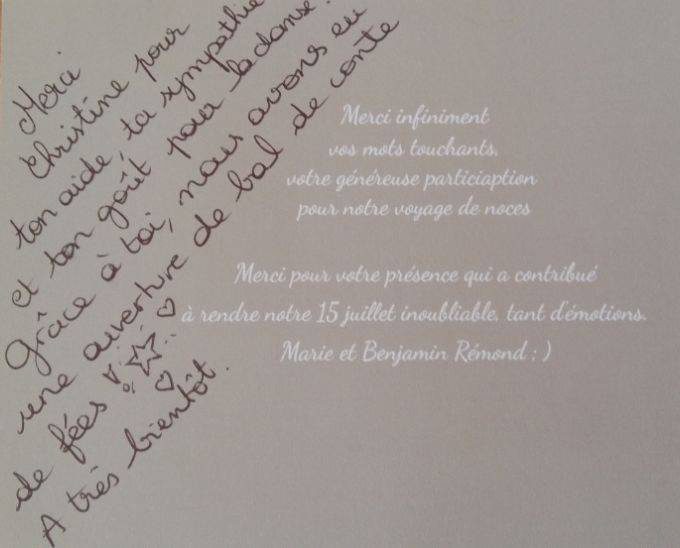 Merci
Christine pour
ton aide, ta sympathie
et ton goût pour la danse.
Grâce à toi, nous avons eu
une ouverture de bal de conte
de fées !
A très bientôt.
Merci infiniment
vos mots touchants,
votre généreuse particiaption
pour notre voyage de noces
Merci pour votre présence qui a contribué
à rendre notre 15 juillet inoubliable, tant d'émotions.
Marie et Benjamin Rémond : )